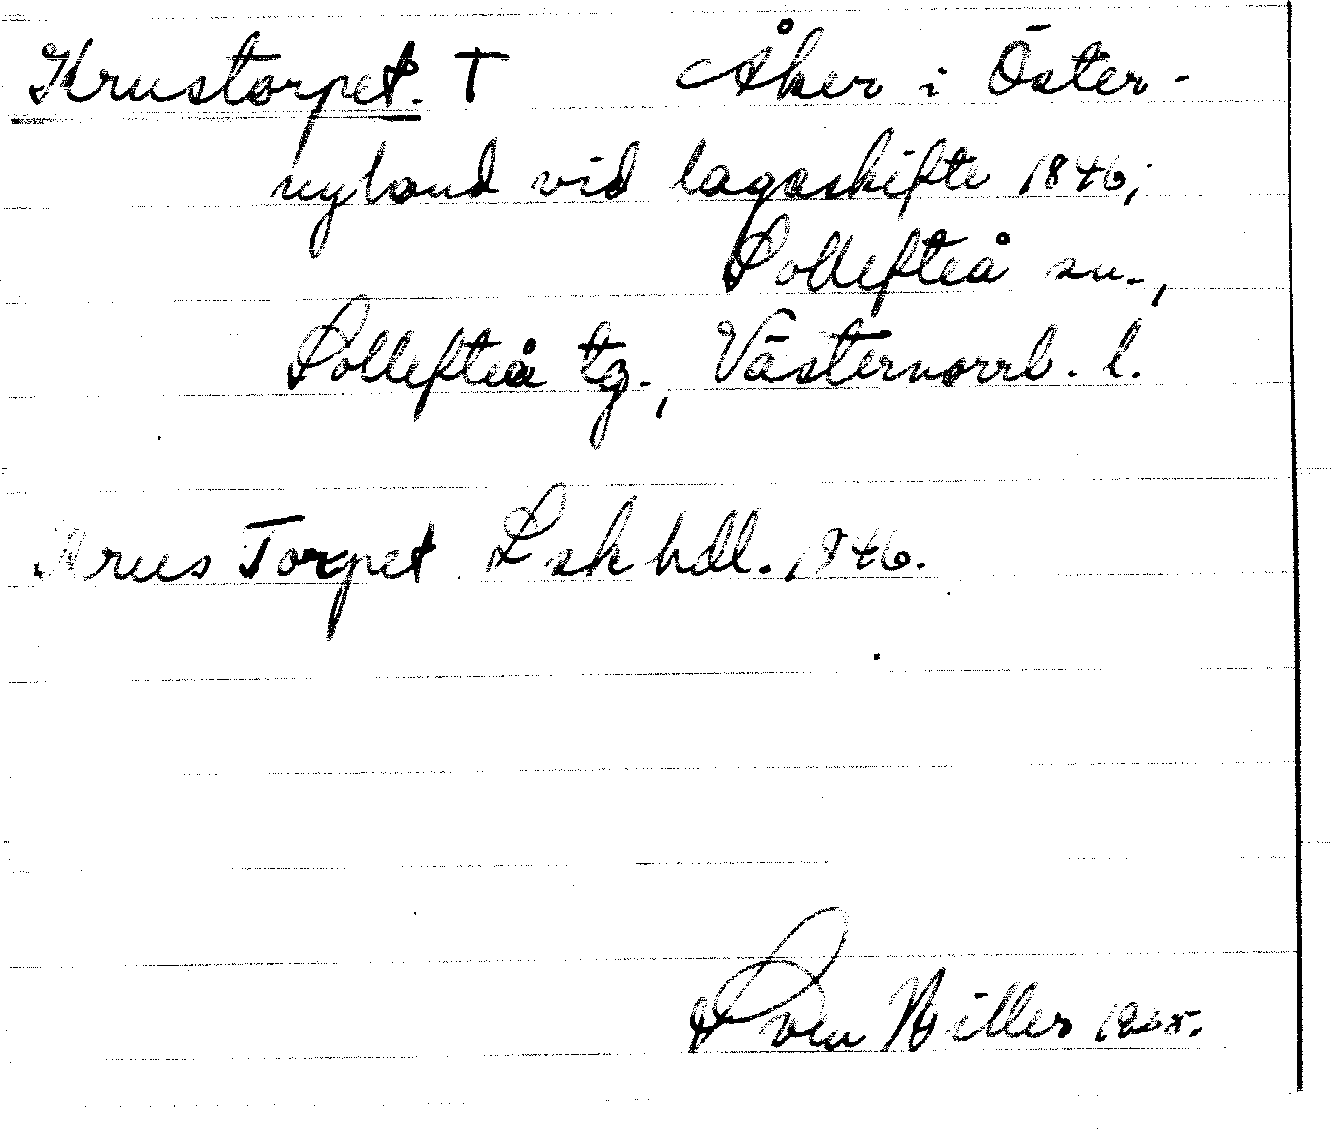 Krustorpet. T Åker i Öster-
nyland vid lagaskifte 1846;
Sollefteå sn.,
Sollefteå tg., Västernorrl. l.
Krus Torpet Lsk hdl. 1846.
Sven Hiller